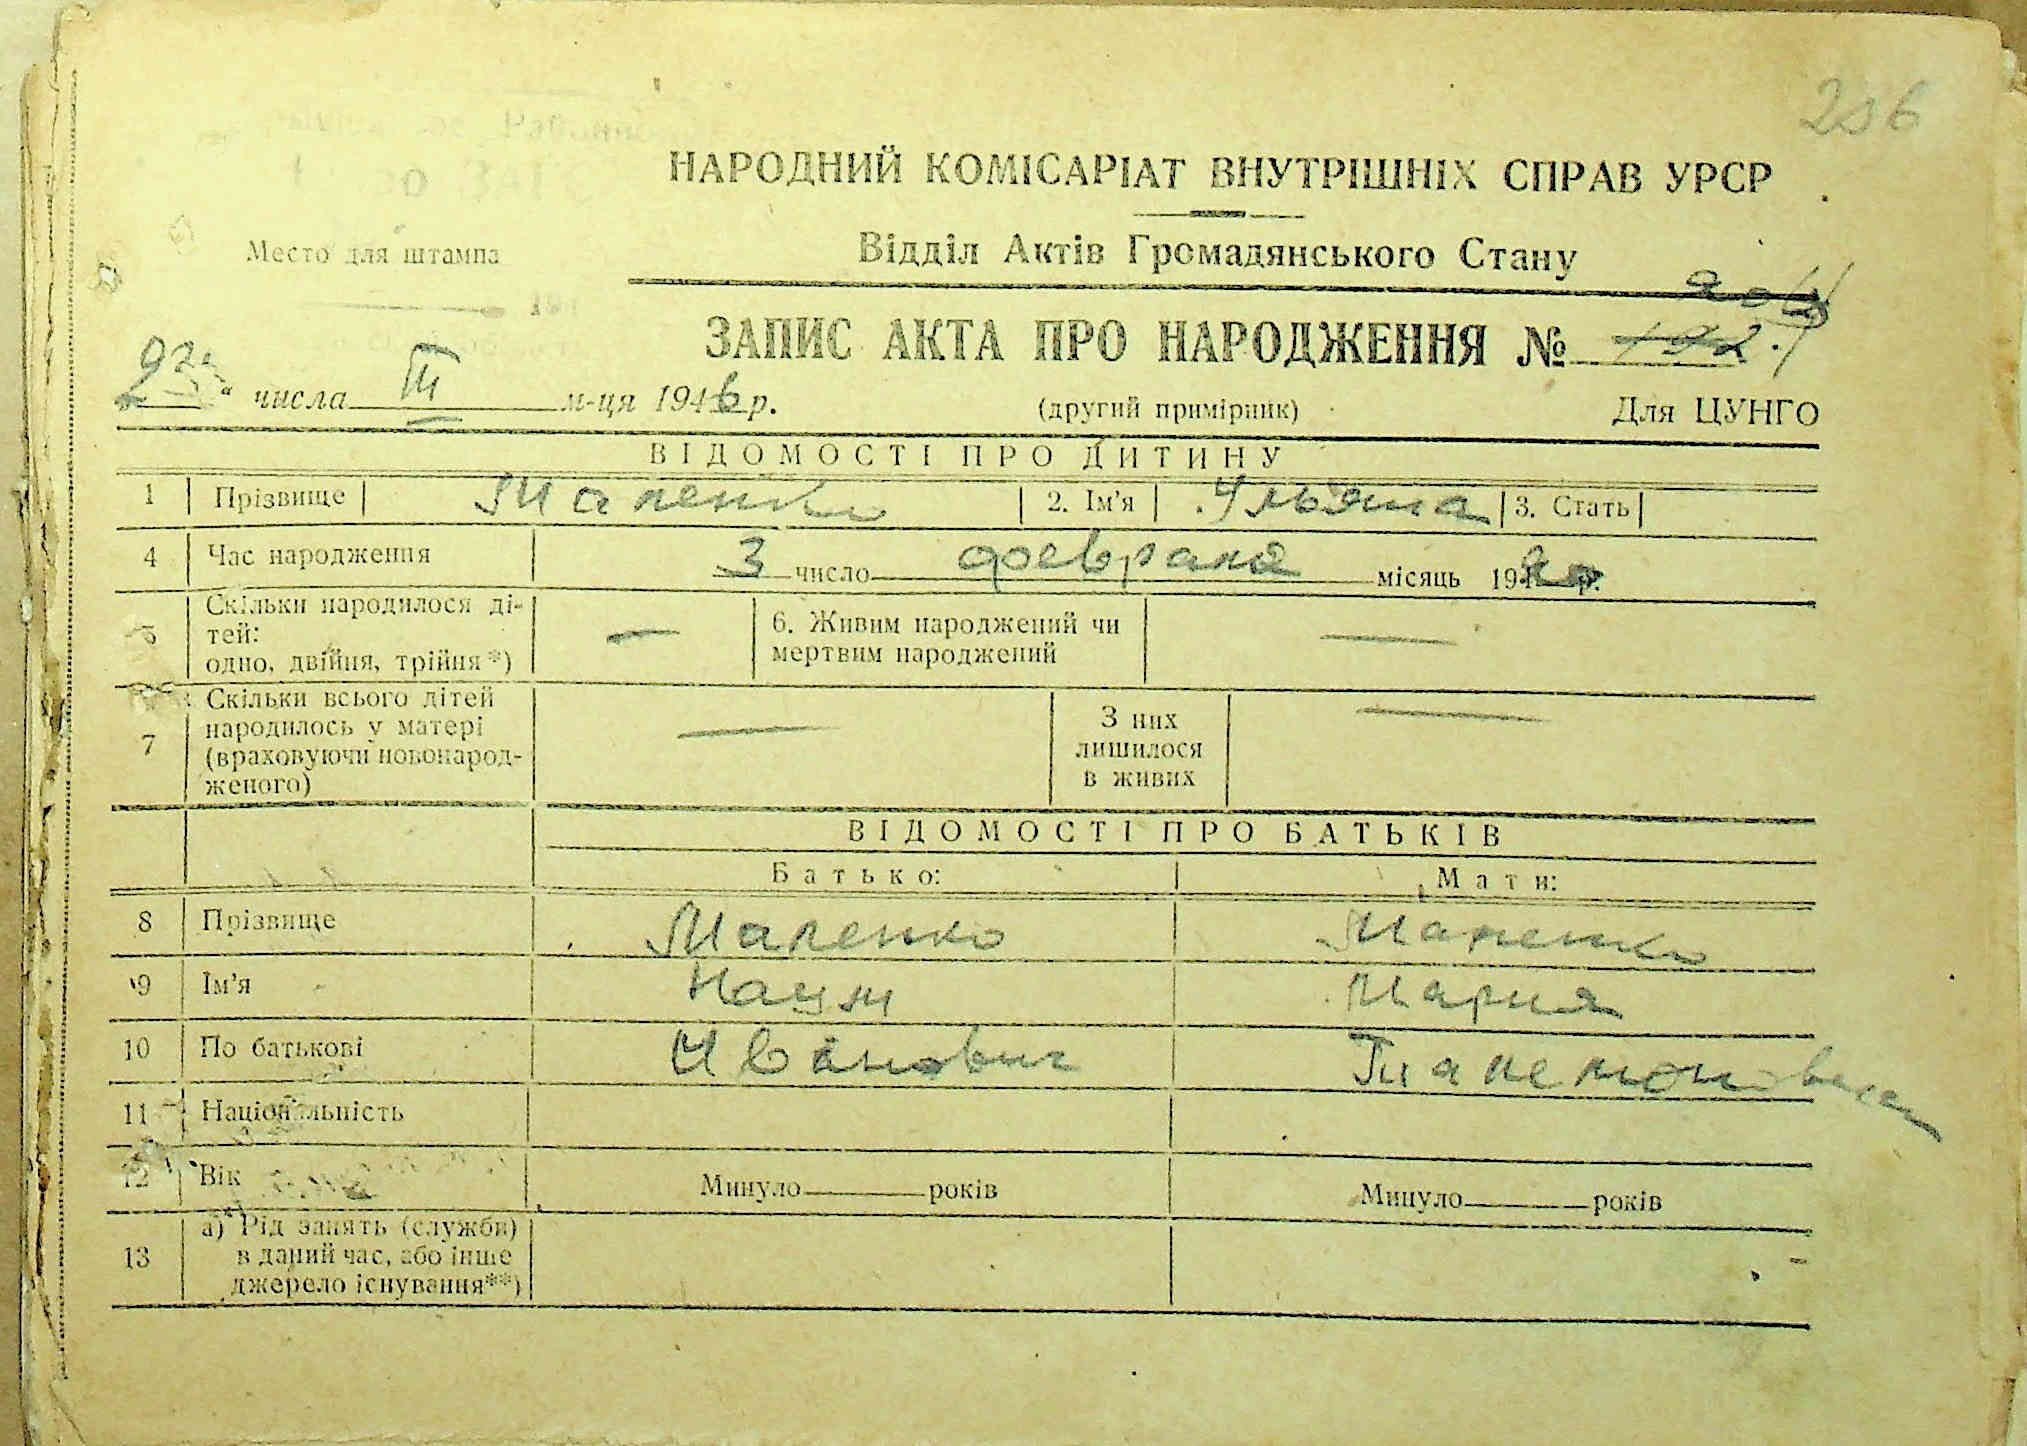 206
НАРОДНИЙ КОМІСАРІАТ ВНУТРІШНІХ СПРАВ УРСР
Место для штампа
Відділ Актів Громадянського Стану
ЗАПИС АКТА ПРО НАРОДЖЕННЯ № 192
числа III м-ця 1946 р.
(другий примірник) Для ЦУНГО
ВІДОМОСТІ ПРО ДИТИНУ
1 Прізвище Маленко 2. Ім'я Ульяна 3. Стать
4 Час народження 3 число февраля місяць 19 р.
5 Скільки народилося ді-
тей:
одно, двійня, трійня*) —
6. Живим народжений чи
мертвим народжений —
7 Скільки всього дітей
народилось у матері
(враховуючи новонарод-
женого) —
З них
лишилося
в живих —
ВІДОМОСТІ ПРО БАТЬКІВ
Батько: Мати:
8 Прізвище Маленко Маленко
9 Ім'я Наум Мария
10 По батькові Иванович
11 Національність
12 Вік Минуло років Минуло років
13 а) Рід занять (служби)
в даний час, або інше
джерело існування**)